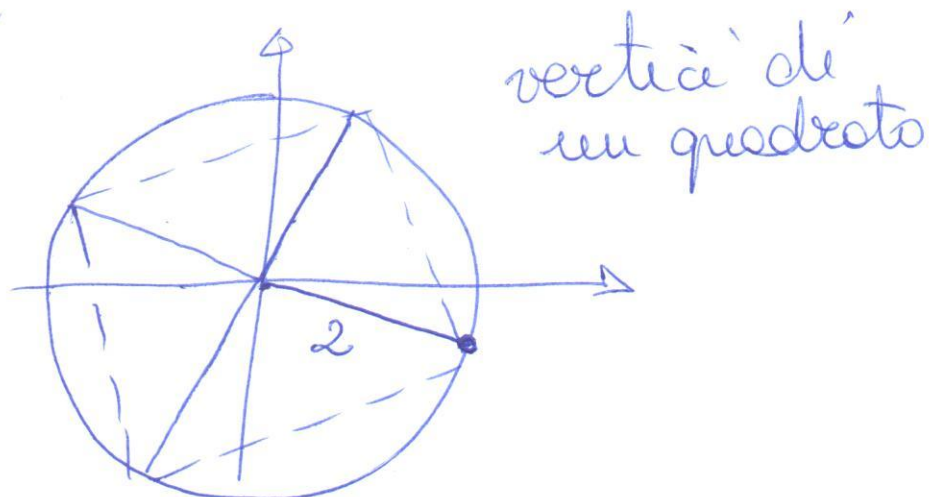 vertici di
un quadrato
2